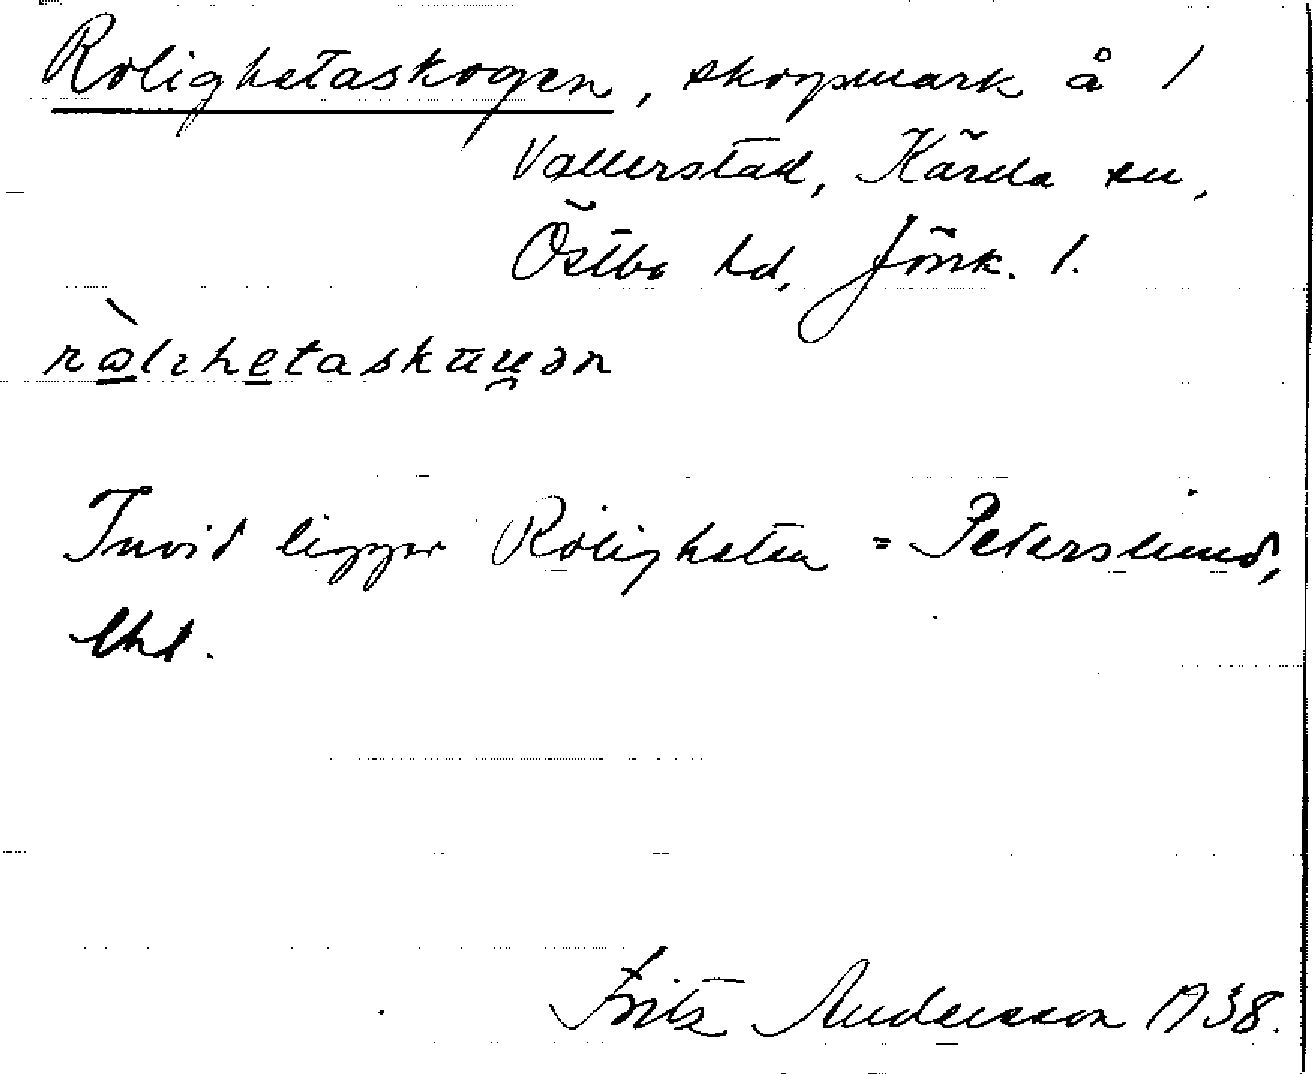 Rolighetaskogen, skogsmark å 1
Vallerstad, Kärda sn,
Östbo hd, Jönk. l.
Invid ligger Roligheten = Peterslund,
lht.
Fritz Andersson 1938.